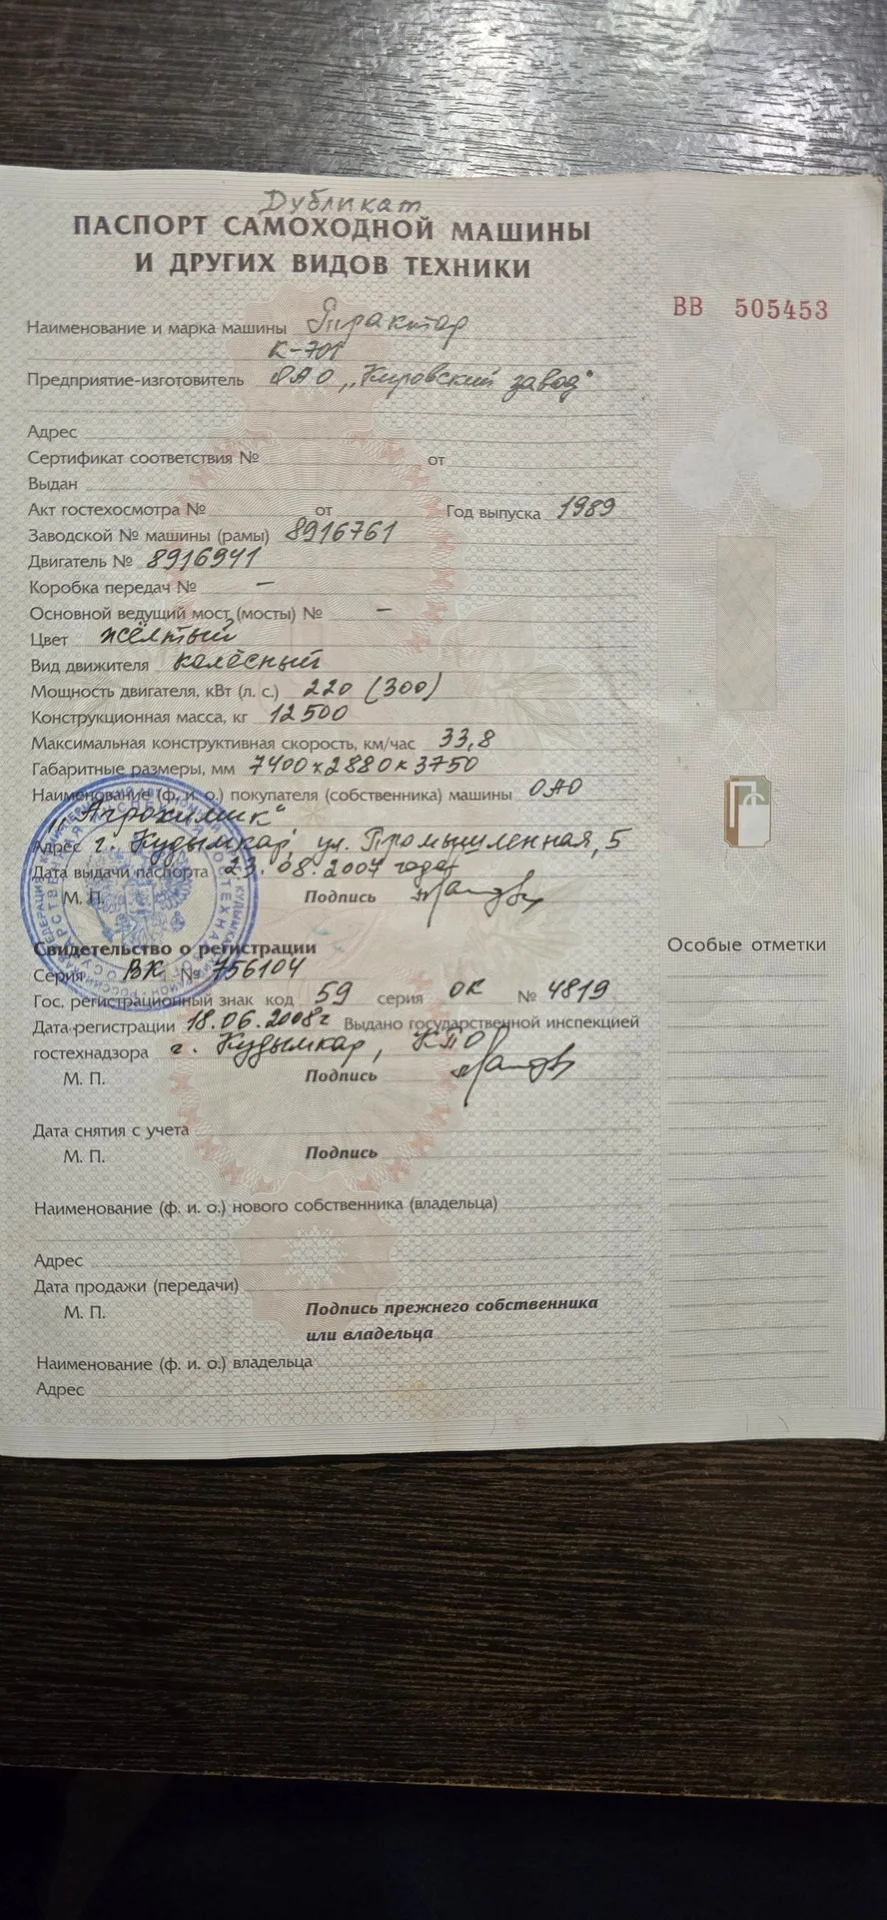 Дубликат
ПАСПОРТ САМОХОДНОЙ МАШИНЫ
И ДРУГИХ ВИДОВ ТЕХНИКИ
ВВ 505453
Наименование и марка машины Трактор
К-701
Предприятие-изготовитель ОАО „Кировский завод"
Адрес
Сертификат соответствия № от
Выдан
Акт гостехосмотра № от Год выпуска 1989
Заводской № машины (рамы) 8916761
Двигатель № 8916941
Коробка передач № —
Основной ведущий мост (мосты) № —
Цвет жёлтый
Вид движителя колёсный
Мощность двигателя, кВт (л. с.) 220 (300)
Конструкционная масса, кг 12500
Максимальная конструктивная скорость, км/час 33,8
Габаритные размеры, мм 7400х2880х3750
Наименование (ф. и. о.) покупателя (собственника) машины ОАО
„Агрохимик"
Адрес г. Кудымкар, ул. Промышленная, 5
Дата выдачи паспорта 23.08.2007 года
М. П. Подпись
Свидетельство о регистрации
Особые отметки
Серия ВК № 756104
Гос. регистрационный знак код 59 серия ОК № 4819
Дата регистрации 18.06.2008г Выдано государственной инспекцией
гостехнадзора г. Кудымкар, КПО
М. П. Подпись
Дата снятия с учета
М. П. Подпись
Наименование (ф. и. о.) нового собственника (владельца)
Адрес
Дата продажи (передачи)
М. П. Подпись прежнего собственника
или владельца
Наименование (ф. и. о.) владельца
Адрес